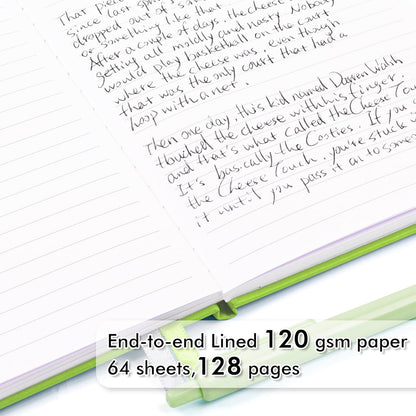 That piec
Since last spr
dropped out of s
or something like that.
After a couple of days, the cheese
getting all moldly and nasty. Nobody
would play basketball on the court
where the cheese was, even though
that was the only court that had a
loop with a net.
Then one day, this kid named Darren Walsh
touched the cheese with his finger,
and that's what called the Cheese Touc
It's basically the Cooties. If you
the Cheese Touch, you're stuck w
it until you pass it on to some
End-to-end Lined 120 gsm paper
64 sheets,128 pages